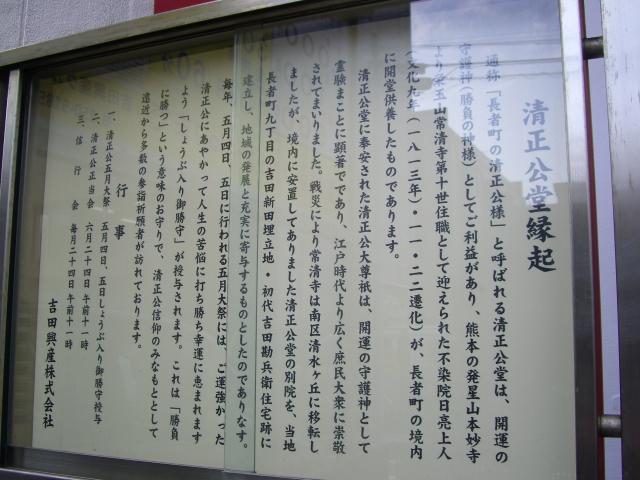 清正公堂縁起
通称「長者町の清正公様」と呼ばれる清正公堂は、開運の
守護神(勝負の神様)としてご利益があり、熊本の発星山本妙寺
より栄玉山常清寺第十世住職として迎えられた不染院日亮上人
(文化九年(一八一三年)・一一・二二遷化)が、長者町の境内
に開堂供養したものであります。
清正公堂に奉安された清正公大尊祇は、開運の守護神として
霊験まことに顕著でであり、江戸時代より広く庶民大衆に崇敬
されてまいりました。戦災により常清寺は南区清水ヶ丘に移転し
ましたが、境内に安置してありました清正公堂の別院を、当地
長者町九丁目の吉田新田埋立地・初代吉田勘兵衛住宅跡に
建立し、地域の発展と充実に寄与するものとしたのでありなす。
毎年、五月四日、五日に行われる五月大祭には、ご運強かった
清正公にあやかって人生の苦悩に打ち勝ち幸運に恵まれます
よう「しょうぶ入り御勝守」が授与されます。これは「勝負
に勝つ」という意味のお守りで、清正公信仰のみなもととして
遠近から多数の参詣祈願者が訪れております。
行事
一、清正公五月大祭 五月四日、五日しょうぶ入り御勝守授与
二、清正公正当会 六月二十四日 午前十一時
三、信行会 毎月二十四日 午前十一時
吉田興産株式会社